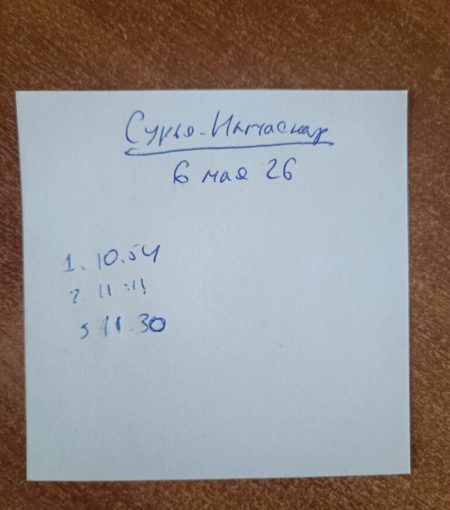 Сурья-Намаскар
6 мая 26
1. 10.54
2. 11:11
3 11:30